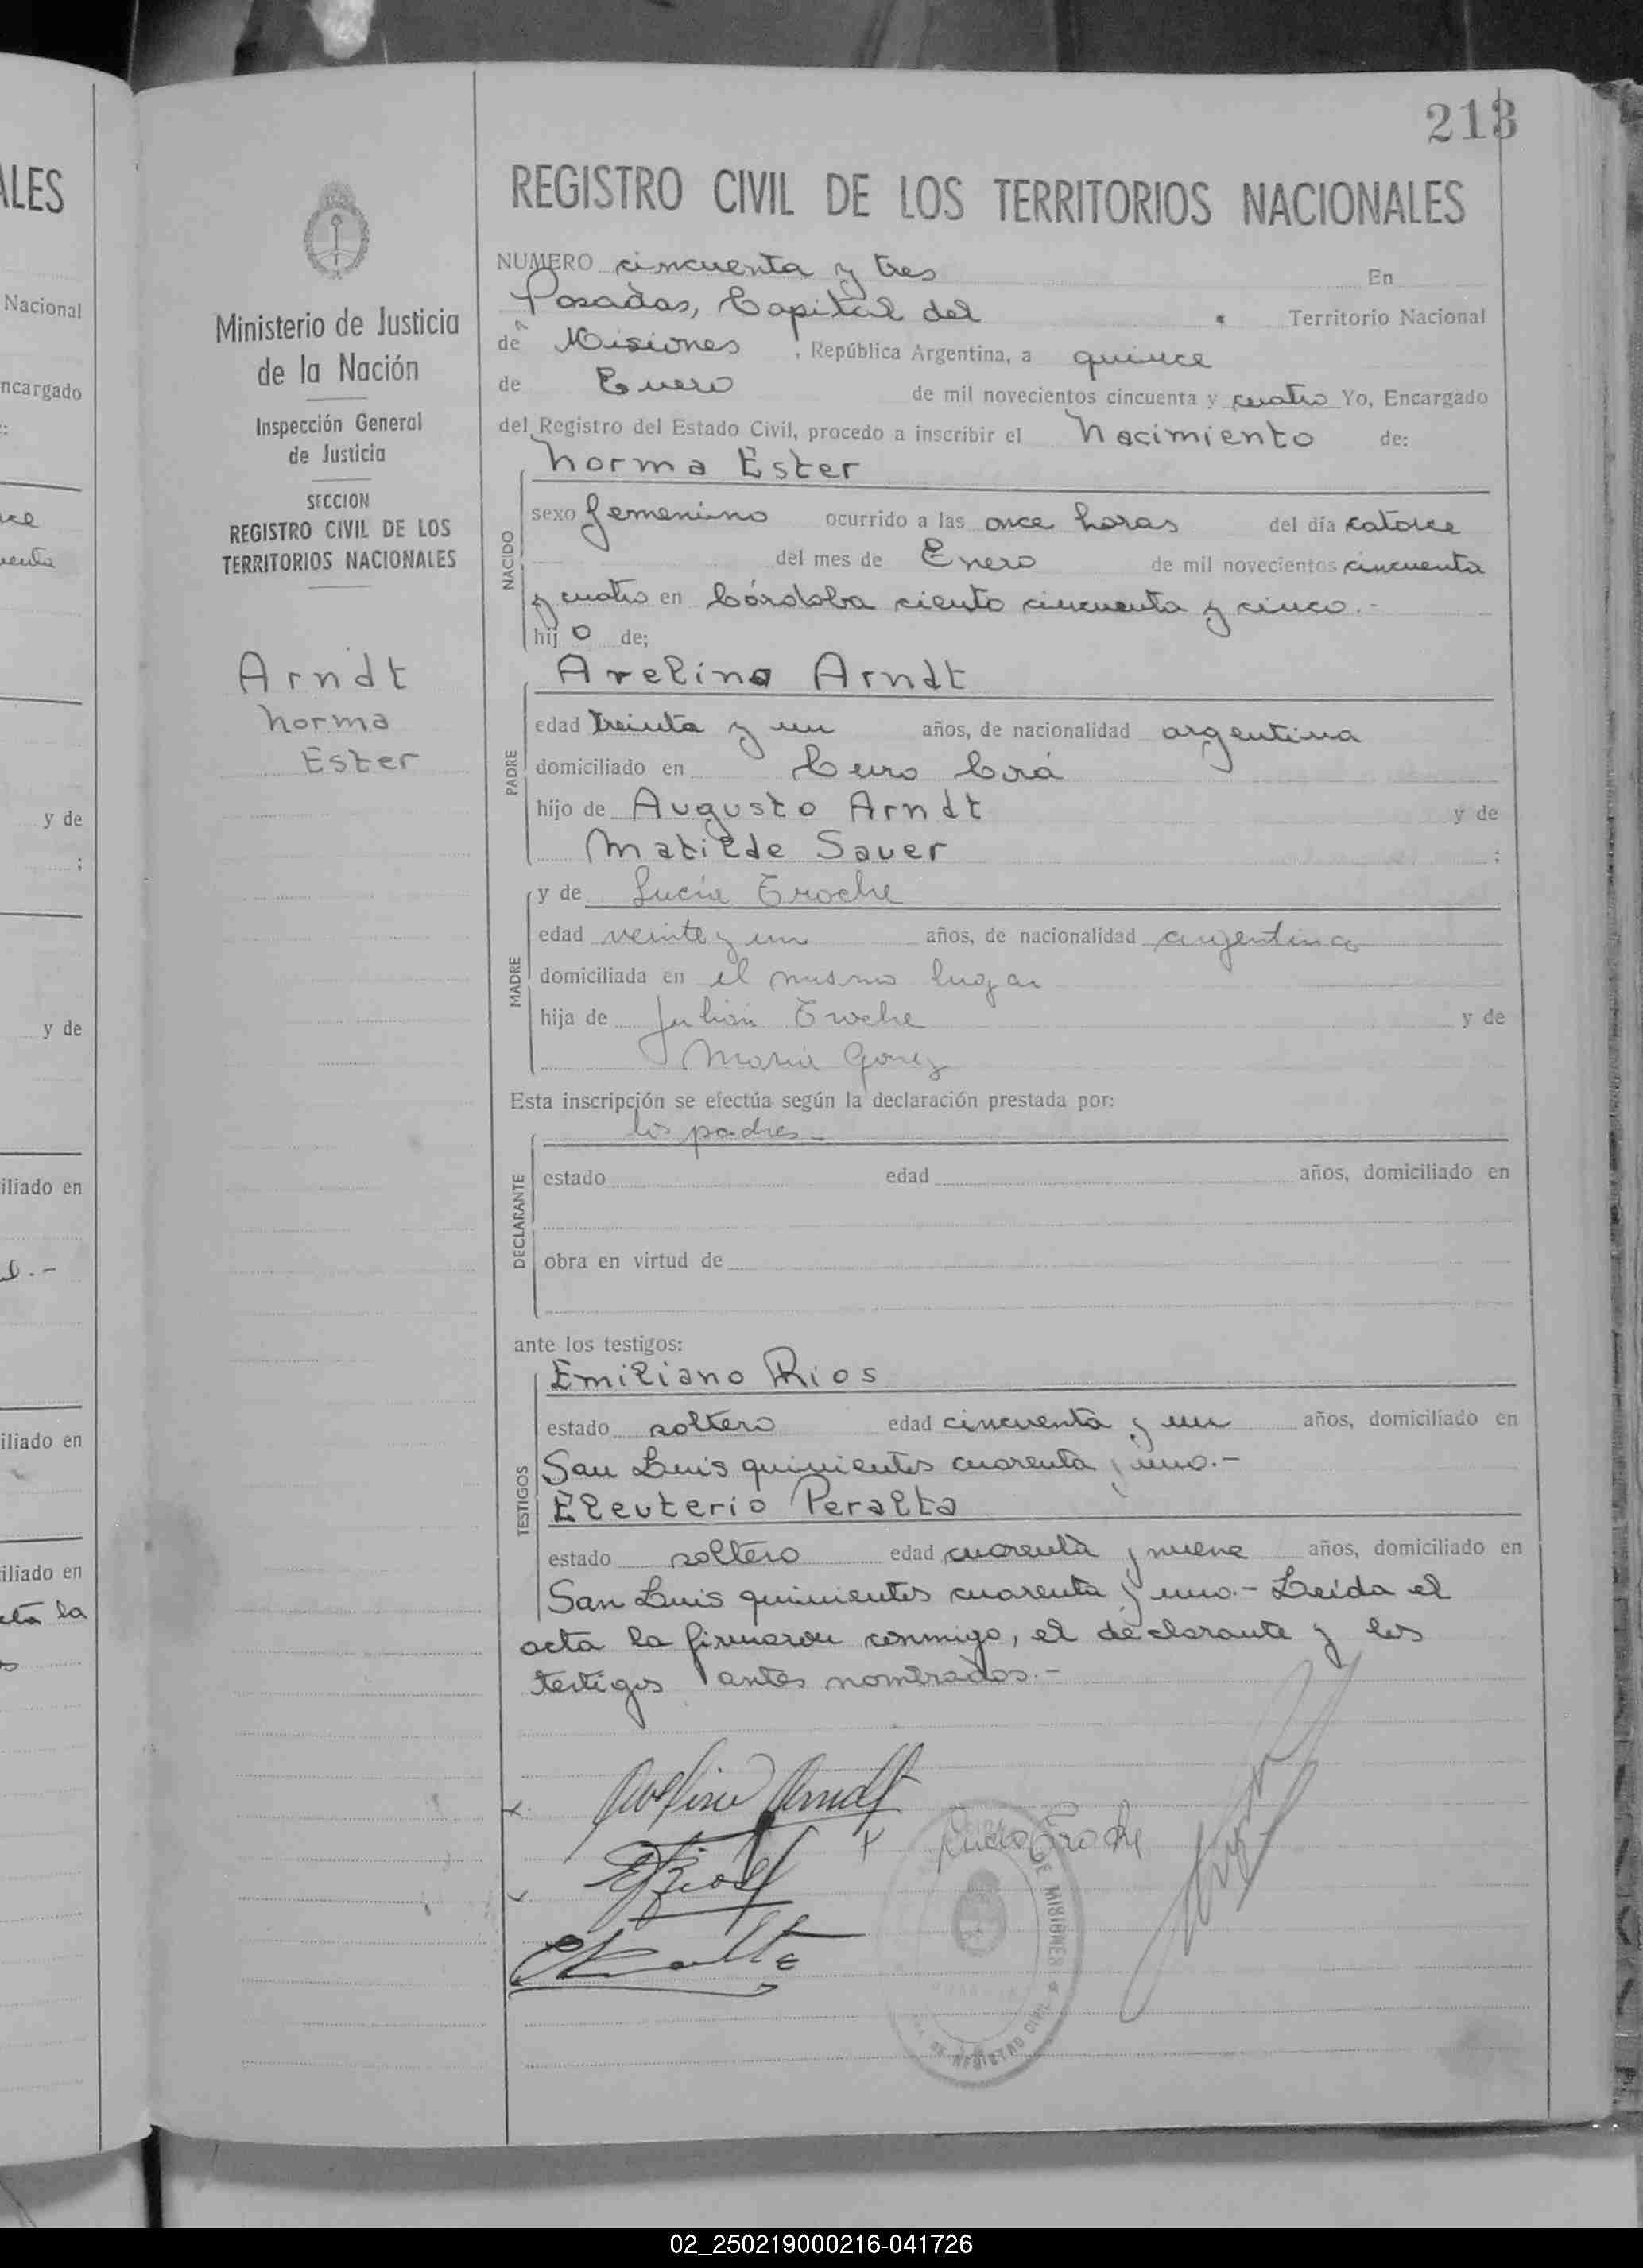 213
ALES
REGISTRO CIVIL DE LOS TERRITORIOS NACIONALES
Nacional
ncargado
y de
y de
iliado en
iliado en
iliado en
la
Ministerio de Justicia
de la Nación
Inspección General
de Justicia
SECCION
REGISTRO CIVIL DE LOS
TERRITORIOS NACIONALES
Arndt
Norma
Ester
NUMERO cincuenta y tres En
Posadas, Capital del Territorio Nacional
de Misiones, República Argentina, a quince
de Enero de mil novecientos cincuenta y cuatro Yo, Encargado
del Registro del Estado Civil, procedo a inscribir el Nacimiento de:
Norma Ester
NACIDO
sexo femenino ocurrido a las once horas del día catorce
del mes de Enero de mil novecientos cincuenta
y cuatro en Córdoba ciento cincuenta y cinco.-
hijo de;
PADRE
Avelino Arndt
edad treinta y un años, de nacionalidad argentina
domiciliado en Cerro Corá
hijo de Augusto Arndt y de
Matilde Sauer :
MADRE
y de Lucía Troche
edad veinte y un años, de nacionalidad argentina
domiciliada en el mismo lugar
hija de Julián Troche y de
María
Esta inscripción se efectúa según la declaración prestada por:
los padres
DECLARANTE
estado edad años, domiciliado en
obra en virtud de
ante los testigos:
TESTIGOS
Emiliano Rios
estado soltero edad cincuenta y un años, domiciliado en
San Luis quinientos cuarenta y uno.-
Eleuterio Peralta
estado soltero edad cuarenta y nueve años, domiciliado en
San Luis quinientos cuarenta y uno.- Leída el
acta la firmaron conmigo, el declarante y los
testigos antes nombrados.-
Avelino Arndt
Lucia Troche
E Rios
DE MISIONES
DE REGISTRO CIVIL
02_250219000216-041726